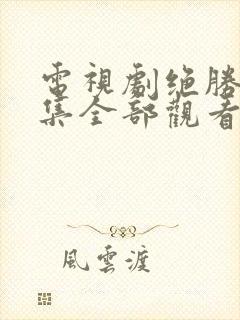 電視劇绝勝
集全部觀看
風雲渡